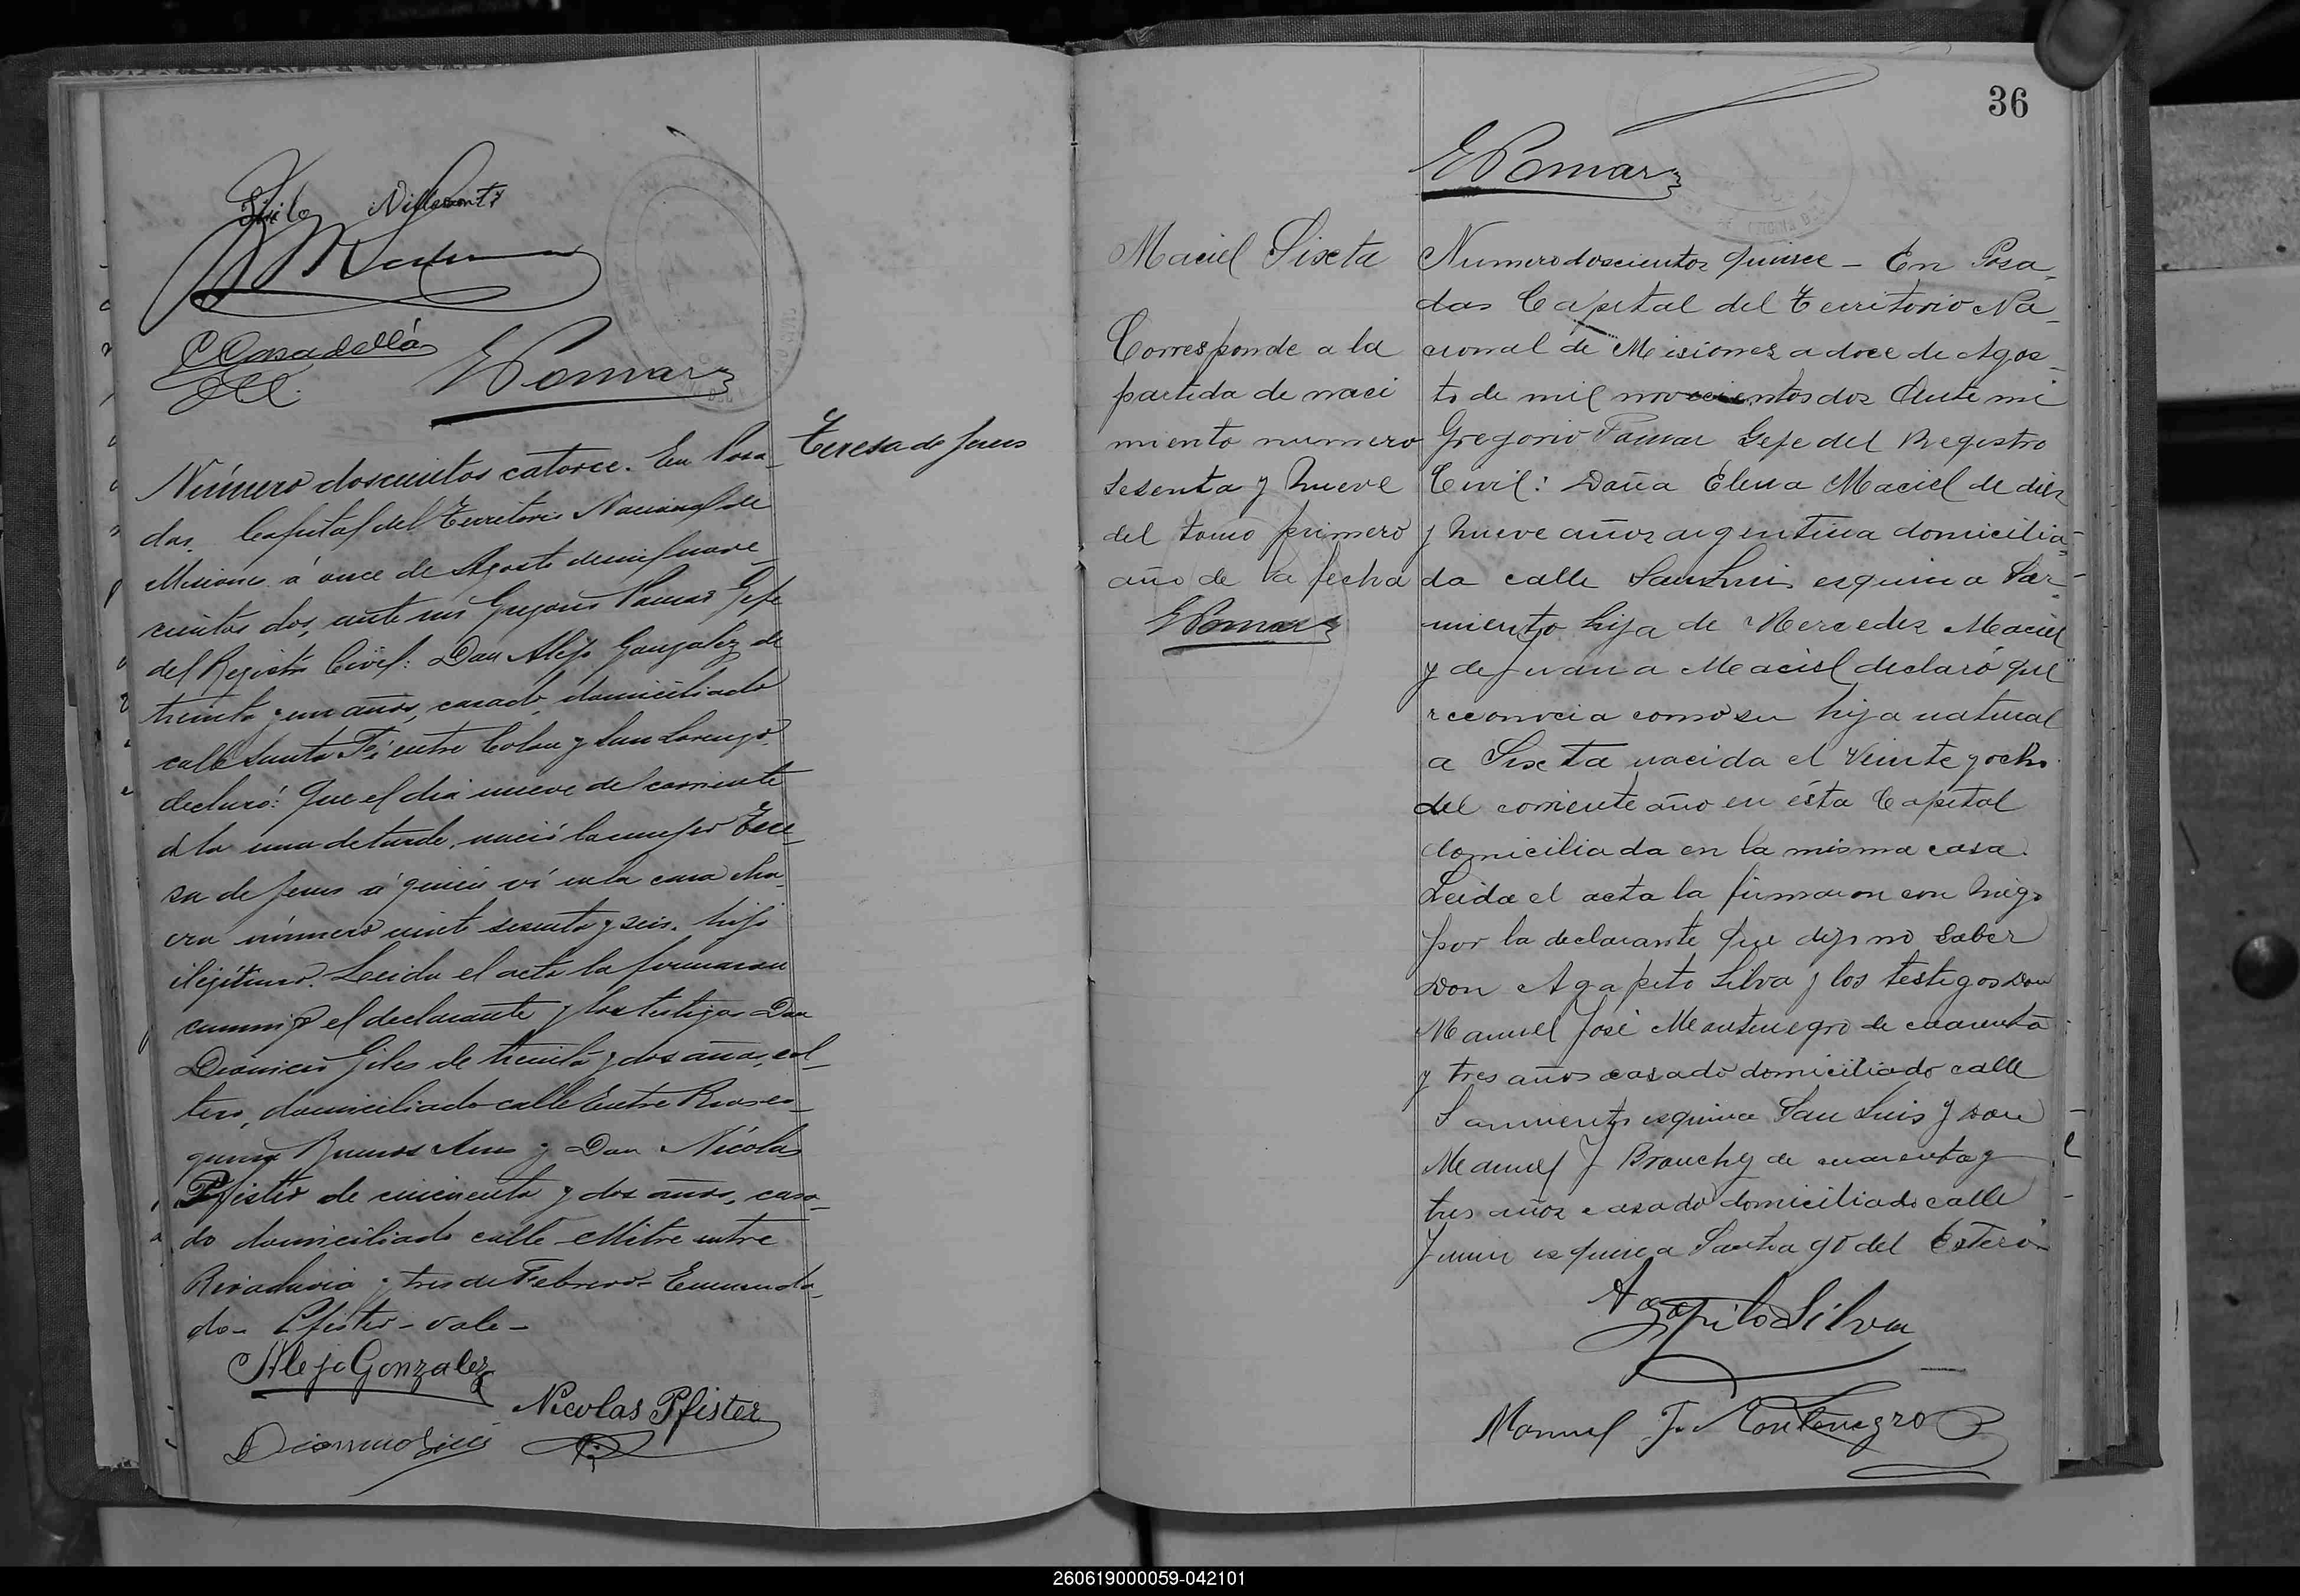 Nicolas
C Casadellá
E Pomar
Teresa de Jesus
Número doscientos catorce. En Posa-
das, Capital del Territorio Nacional de
Misiones á once de Agosto de mil nove-
cientos dos, ante mi Gregorio Pomar Gefe
del Registro Civil: Don Alejo Gonzalez de
treinta y un años, casado, domiciliado
calle Santa Fé entre Colon y San Lorenzo,
declaró: Que el dia nueve del corriente
á la una de tarde, nació la mujer Tere-
sa de Jesus á quien ví en la casa cha-
cra número ciento sesenta y seis, hijo
ilegítimo. Leida el acta la firmaron
conmigo el declarante y los testigos Don
Dionicio Giles de treinta y dos años, sol-
tero, domiciliado calle Entre Rios es-
quina Buenos Aires y Don Nícolas
Pfister de cincuenta y dos años, casa-
do domiciliado calle Mitre entre
Rivadavia y tres de Febrero- Enmenda-
do- Pfister- vale-
Alejo Gonzalez
Nicolas Pfister
36
E Pomar
Maciel Sixta
Corresponde a la
partida de naci
miento numero
sesenta y nueve
del tomo primero
año de la fecha
E Pomar
Numero doscientos quince - En Posa-
das Capital del Territorio Na-
cional de Misiones a doce de Agos-
to de mil novecientos dos Ante mi
Gregorio Pomar Gefe del Registro
Civil: Doña Elena Maciel de diez
y nueve años argentina domicilia-
da calle San Luis esquina Sar-
miento hija de Mercedes Maciel
y de Juana Maciel declaró que
reconocia como su hija natural
a Sixta nacida el veinte y ocho
del corriente año en ésta Capital
domiciliada en la misma casa.
Leida el acta la firmaron con migo
por la declarante que dijo no saber
Don Agapito Silva y los testigos Don
Manuel José Montenegro de cuarenta
y tres años casado domiciliado calle
Sarmiento esquina San Luis y Don
Manuel J Brouchy de cuarenta y
tres años casado domiciliado calle
Junin esquina Santiago del Estero-
Agapito Silva
Manuel J. Montenegro
260619000059-042101